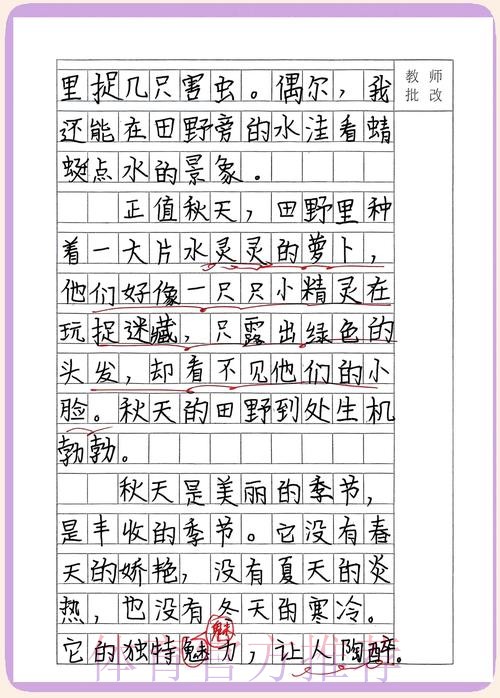 教师
批改
里捉几只害虫。偶尔，我
还能在田野旁的水洼看蜻
蜓点水的景象。
正值秋天，田野里种
着一大片水灵灵的萝卜，
他们好像一只只小精灵在
玩捉迷藏，只露出绿色的
头发，却看不见他们的小
脸。秋天的田野到处生机
勃勃。
秋天是美丽的季节，
是丰收的季节。它没有春
天的娇艳，没有夏天的炎
热，也没有冬天的寒冷。
魅
它的独特魅力，让人陶醉。
体育官方推荐